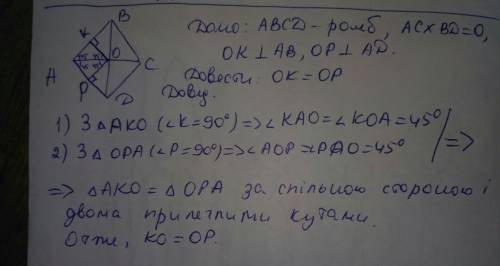 Дано: ABCD - ромб, AC×BD=O,
OK⊥AB, OP⊥AD.
Довести: OK=OP
Довед.
B
K
O
A
C
P
D
1) З △AKO (∠K=90°)=>∠KAO=∠KOA=45°
2) З △OPA (∠P=90°)=>∠AOP=∠PAO=45° /=>
=> △AKO = △OPA за спільною стороною і
двома прилеглими кутами.
Отже, KO=OP.